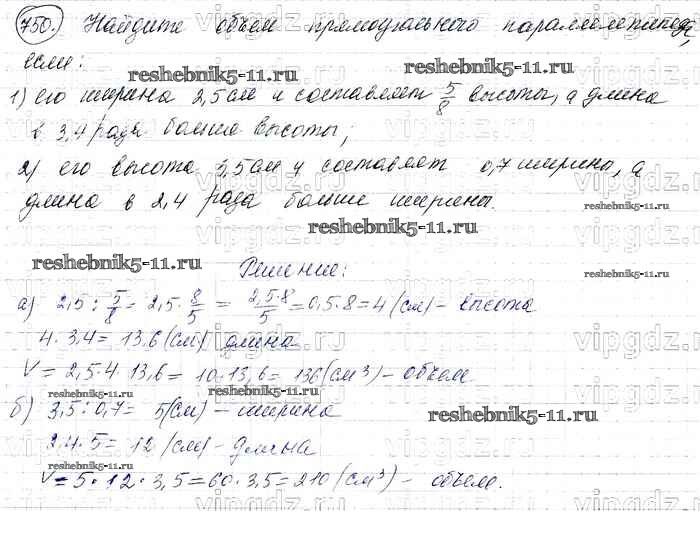 750. Найдите объем прямоугольного параллелепипеда,
если:
reshebnik5-11.ru reshebnik5-11.ru
1) его ширина 2,5 см и составляет 5/8 высоты, а длина
в 3,4 раза больше высоты;
2) его высота 3,5 см и составляет 0,7 ширины, а
длина в 2,4 раза больше ширины.
reshebnik5-11.ru
reshebnik5-11.ru
reshebnik5-11.ru
Решение:
reshebnik5-11.ru
а) 2,5 : 5/8 = 2,5 · 8/5 = 2,5·8/5 = 0,5·8 = 4 (см) - высота
4 · 3,4 = 13,6 (см) длина
V = 2,5·4·13,6 = 10·13,6 = 136 (см³) - объем
reshebnik5-11.ru reshebnik5-11.ru
б) 3,5 : 0,7 = 5 (см) - ширина
reshebnik5-11.ru
2,4 · 5 = 12 (см) - длина
reshebnik5-11.ru
V = 5 · 12 · 3,5 = 60 · 3,5 = 210 (см³) - объем.
vipgdz.ru